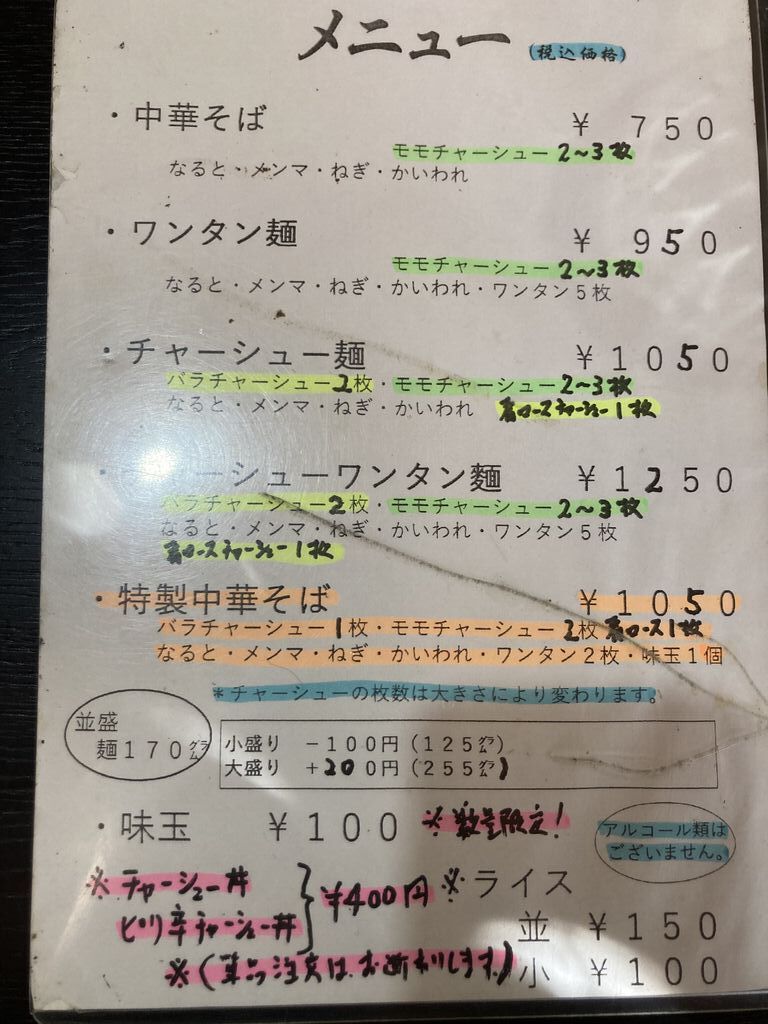 メニュー (税込価格)
・中華そば ¥ 750
モモチャーシュー2~3枚
なると・メンマ・ねぎ・かいわれ
・ワンタン麺 ¥ 950
モモチャーシュー2~3枚
なると・メンマ・ねぎ・かいわれ・ワンタン5枚
・チャーシュー麺 ¥1050
バラチャーシュー2枚・モモチャーシュー2~3枚
なると・メンマ・ねぎ・かいわれ 肩ロースチャーシュー1枚
ーシューワンタン麺 ¥1250
バラチャーシュー2枚・モモチャーシュー2~3枚
なると・メンマ・ねぎ・かいわれ・ワンタン5枚
肩ロースチャーシュー1枚
・特製中華そば ¥1050
バラチャーシュー1枚・モモチャーシュー2枚 肩ロース1枚
なると・メンマ・ねぎ・かいわれ・ワンタン2枚・味玉1個
*チャーシューの枚数は大きさにより変わります。
並盛
麺170グラム
小盛り -100円(125グラム)
大盛り +200円(255グラム)
・味玉 ¥100 ※数量限定!
アルコール類は
ございません。
※チャーシュー丼
ピリ辛チャーシュー丼
} ¥400円
※(単品注文は、お断りします)
※ライス
並 ¥150
小 ¥100